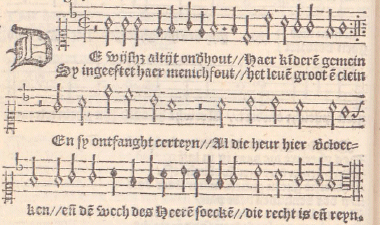 DE wijßz altijt onđhout//Haer kīderē gemein
Sy ingeeftet haer menichfout//het leuē groot ē clein
En sy ontfanght certeyn//Al die heur hier v̄cloec-
ken//eñ dē wech des Heerē soeckē//die recht is eñ reyn.